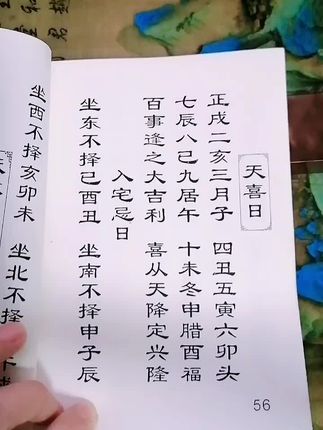 天喜日
正戌二亥三月子 四丑五寅六卯头
七辰八己九居午 十未冬申腊酉福
百事逢之大吉利 喜从天降定兴隆
入宅忌日
坐东不择己酉丑 坐南不择申子辰
坐西不择亥卯未 坐北不择
56